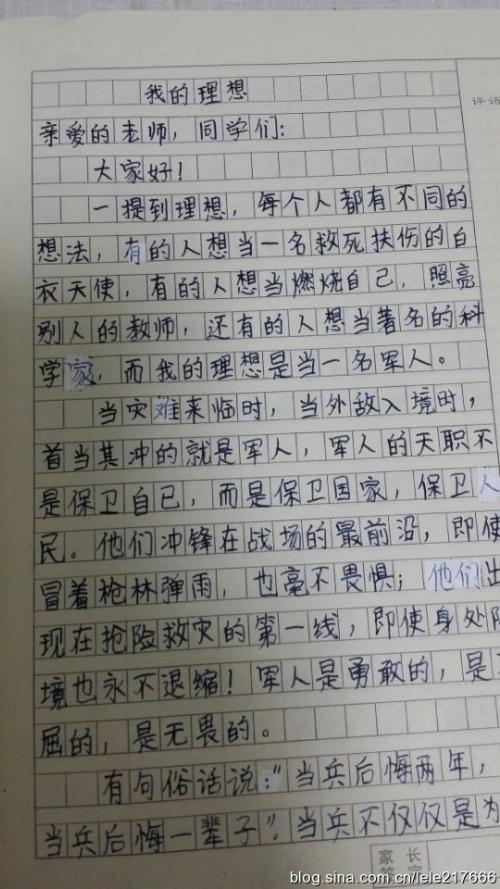 我的理想
评语
亲爱的老师，同学们：
大家好！
一提到理想，每个人都有不同的
想法，有的人想当一名救死扶伤的白
衣天使，有的人想当燃烧自己，照亮
别人的教师，还有的人想当著名的科
学家，而我的理想是当一名军人。
当灾难来临时，当外敌入境时，
首当其冲的就是军人，军人的天职不
是保卫自己，而是保卫国家，保卫人
民。他们冲锋在战场的最前沿，即使
冒着枪林弹雨，也毫不畏惧；他们出
现在抢险救灾的第一线，即使身处
境也永不退缩！军人是勇敢的，是
屈的，是无畏的。
有句俗话说："当兵后悔两年，
当兵后悔一辈子"。当兵不仅仅是为
家长
blog.sina.com.cn/lele217666